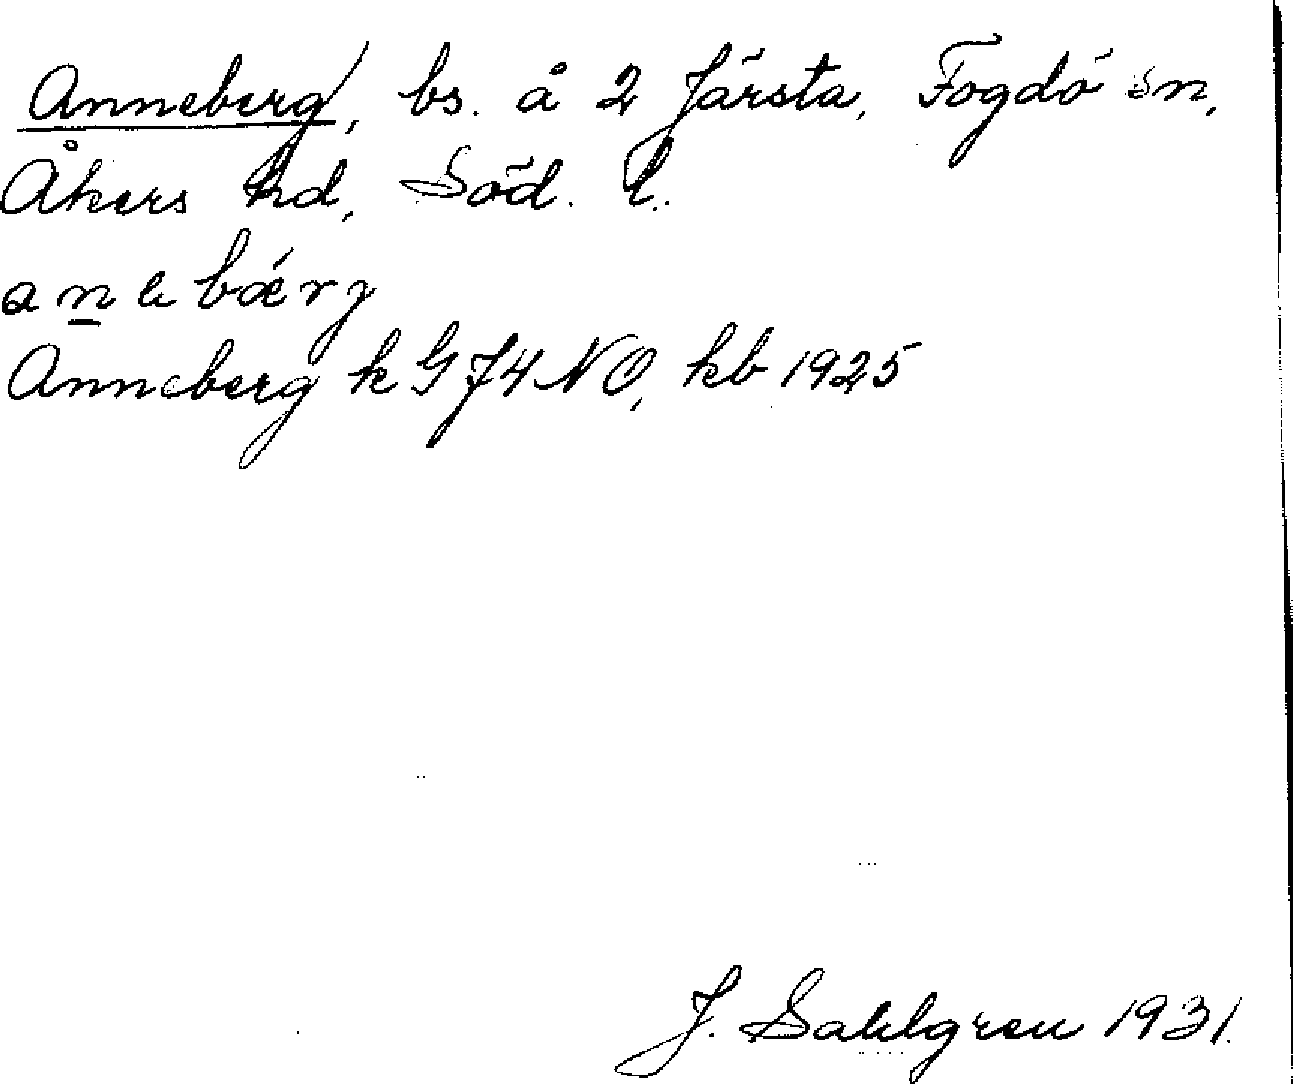 Anneberg, bs. å 2 Järsta, Fogdö sn,
Åkers hd, Söd. l.
anebærj
Anneberg k G J4 NO, kb 1925
J. Sahlgren 1931.